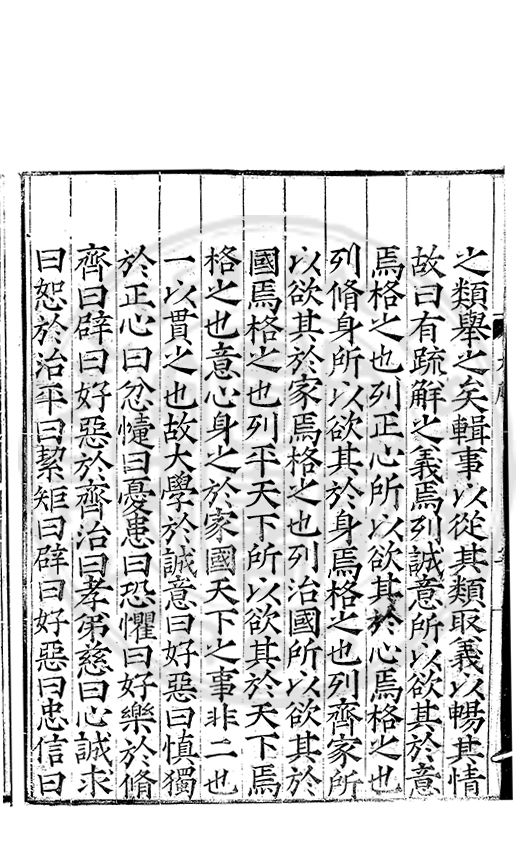 之類舉之矣輯事以從其類取義以暢其情
故曰有疏解之義焉列誠意所以欲其於意
焉格之也列正心所以欲其於心焉格之也
列脩身所以欲其於身焉格之也列齊家所
以欲其於家焉格之也列治國所以欲其於
國焉格之也列平天下所以欲其於天下焉
格之也意心身之於家國天下之事非二也
一以貫之也故大學於誠意曰好惡曰慎獨
於正心曰忿懥曰憂患曰恐懼曰好樂於脩
齊曰辟曰好惡於齊治曰孝弟慈曰心誠求
曰恕於治平曰絜矩曰辟曰好惡曰忠信曰